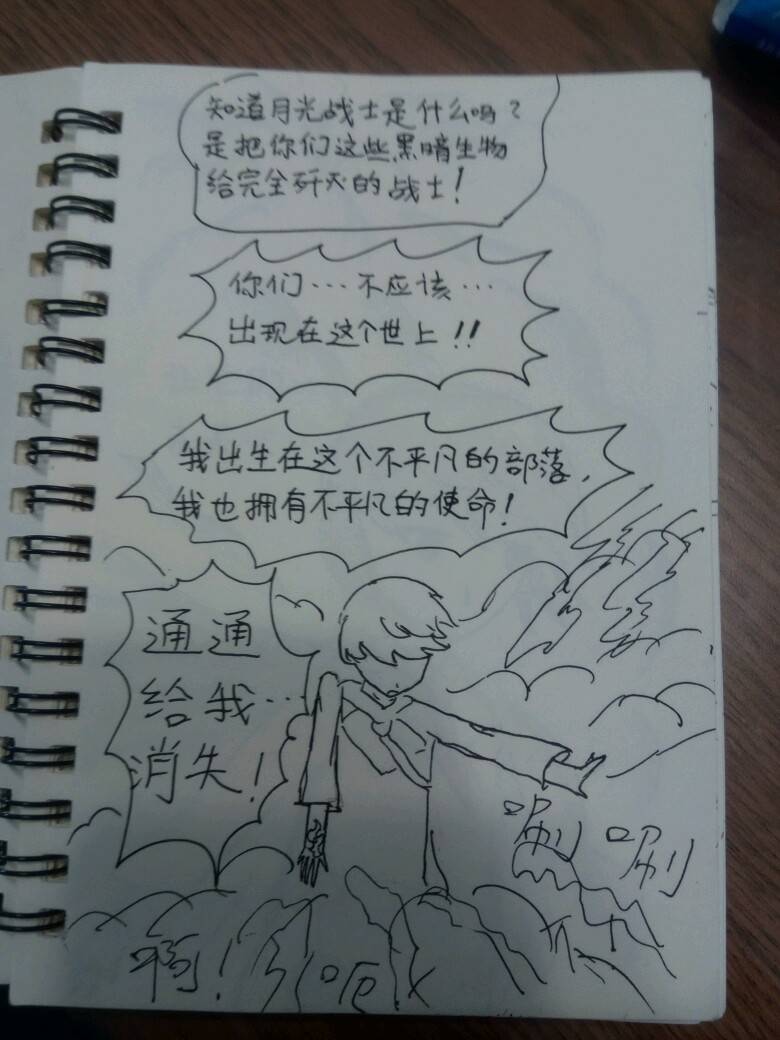 知道月光战士是什么吗？
是把你们这些黑暗生物
给完全歼灭的战士！
你们…不应该…
出现在这个世上！！
我出生在这个不平凡的部落，
我也拥有不平凡的使命！
通通
给我…
消失！
唰 唰
啊！
呃
不